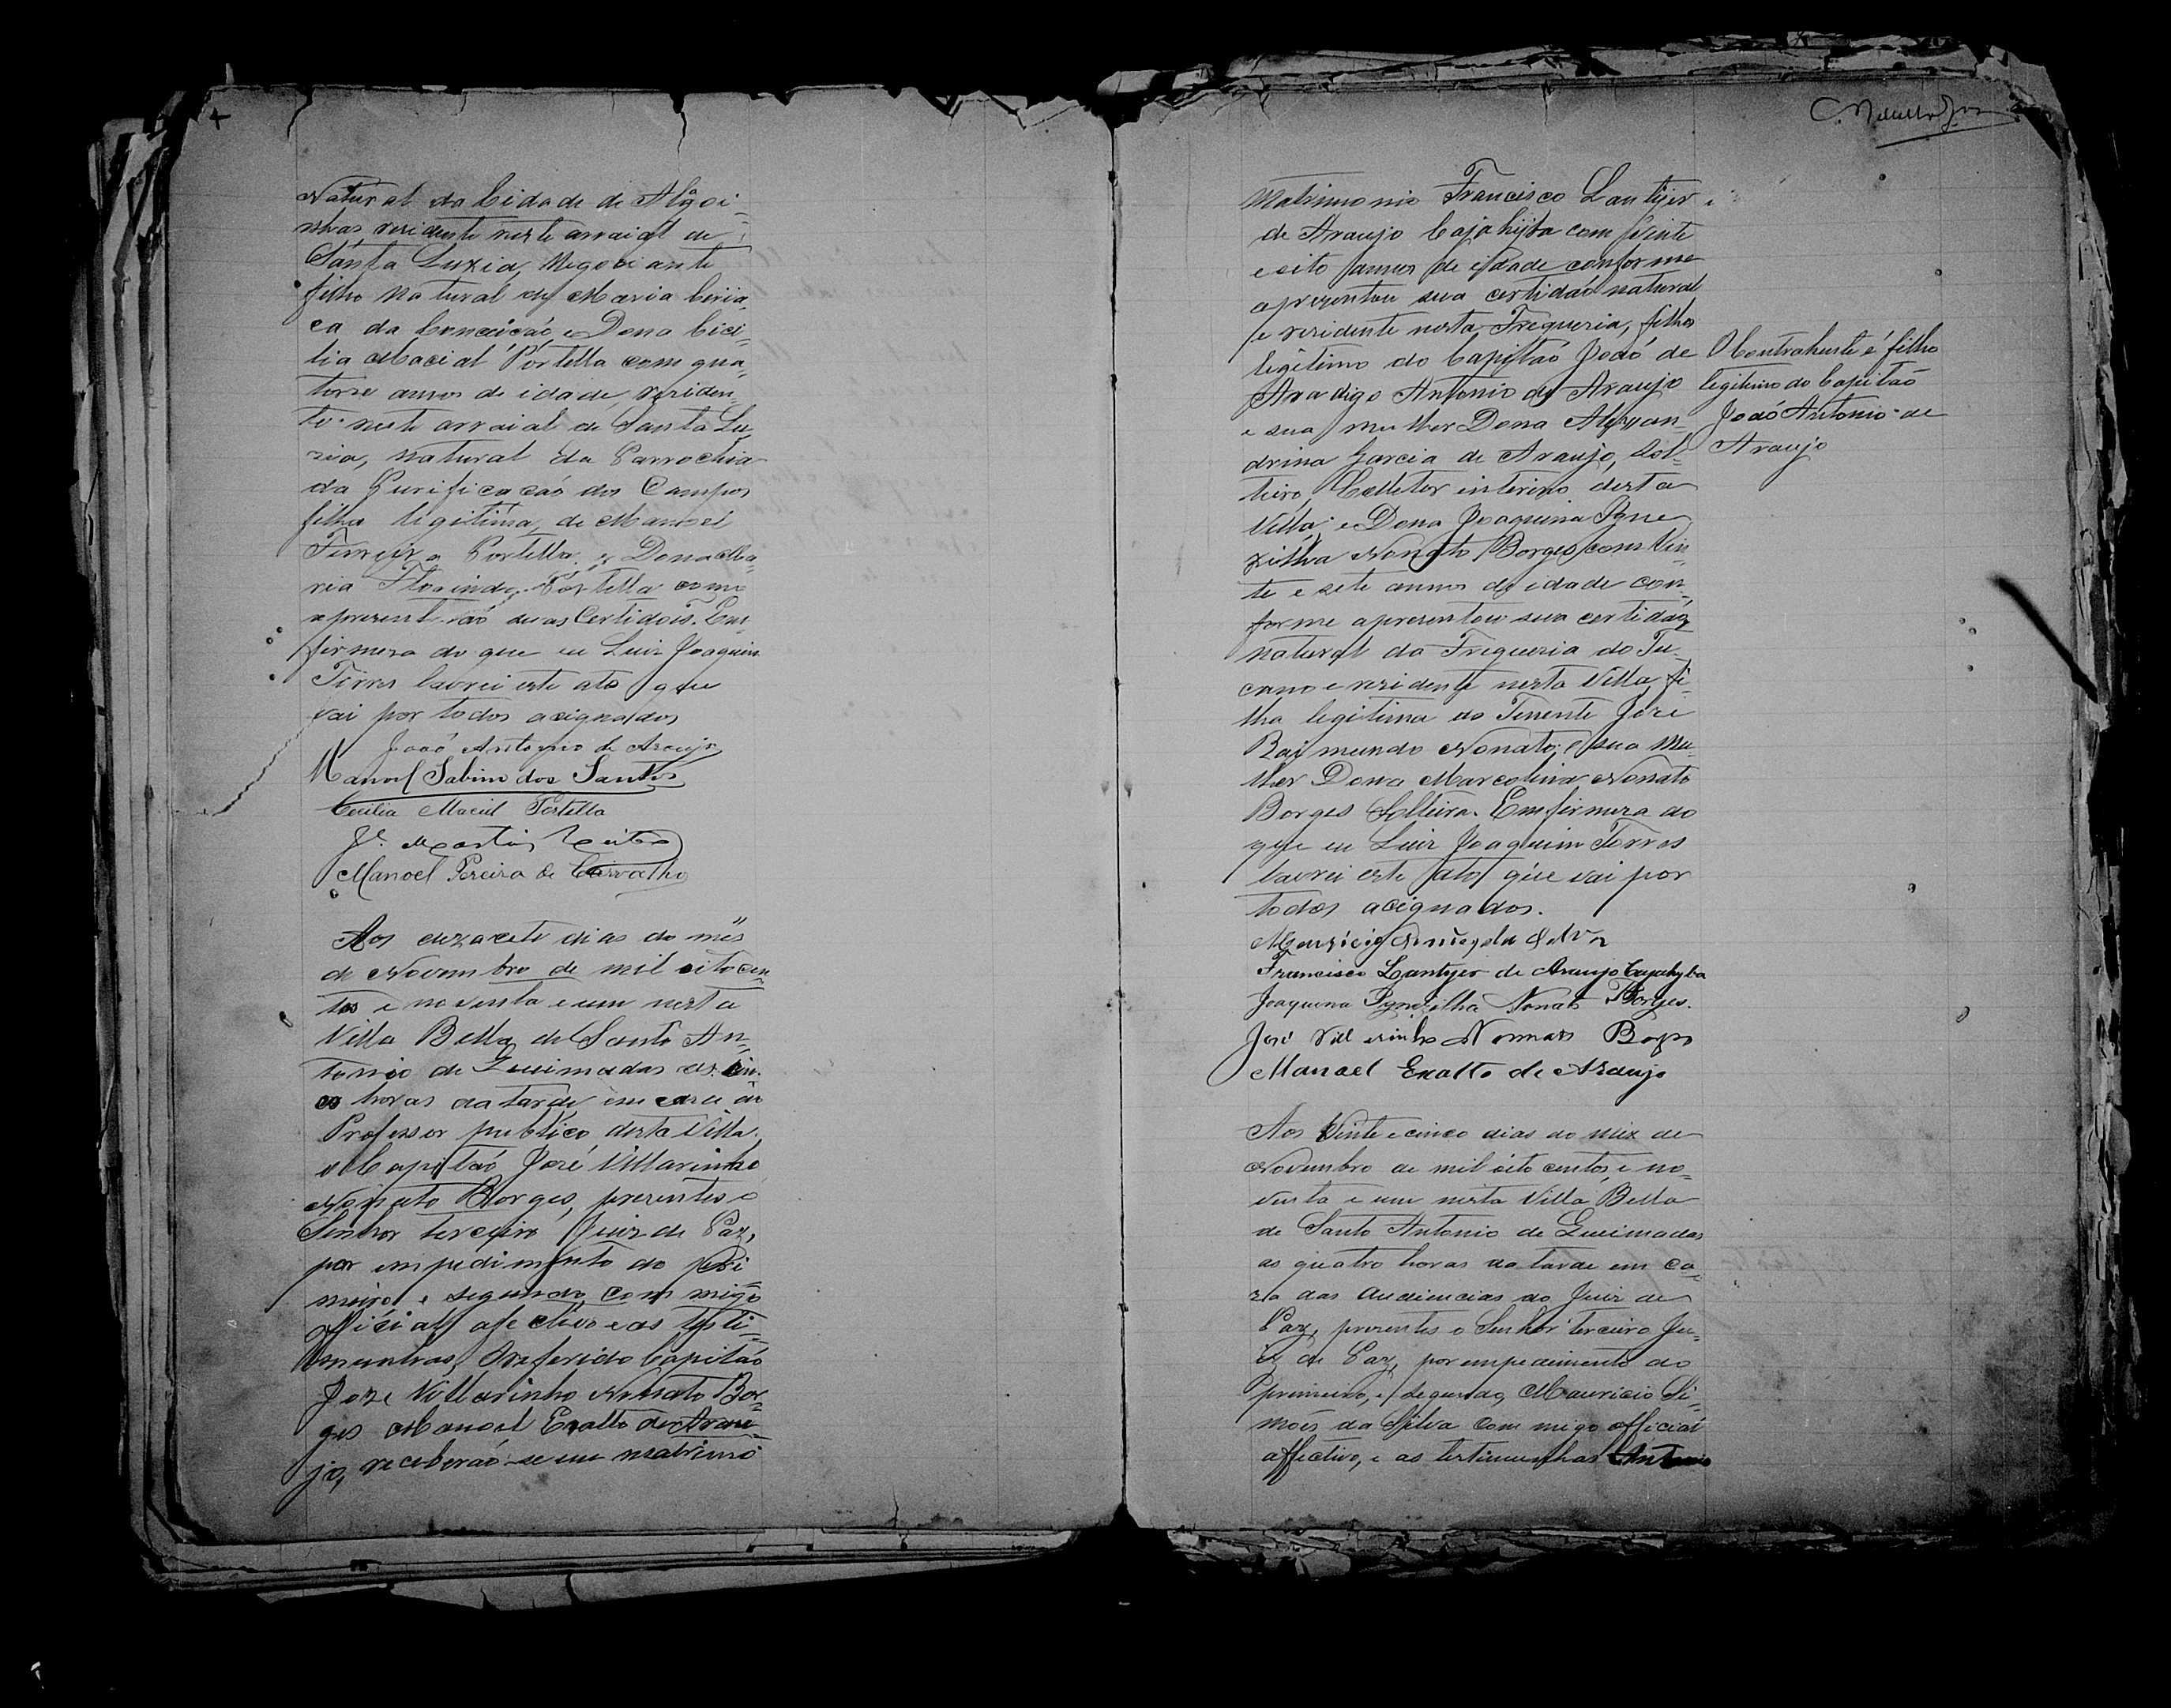 Natural da Cidade de Alagoi-
nhas residente neste arraial de
Santa Luzia, Negociante
filho natural de Maria
ca da Conceicáo, e Dona Ceci-
lia Macial Portella com qua-
torze annos de idade, residen-
te neste arraial de Santa Lu-
zia, natural da Parrochia
da Purificacáo dos Campos
filha legitima, de Manoel
Ferreira Portella e Dona Ma-
ria Florinda Portella como
aprezentráo suas Certidois. Em
firmeza do que eu Luiz Joaquim
Torres lavrei este ato que
vai por todos acignados
Joaó Antonio de Araujo
Manoel Sabino dos Santos
Cecilia Maciel Portella
Je. Martins
Manoel Pereira de Carvalho
Aos dezacete dias do mês
de Novembro de mil oitocen
tos e noventa e um nesta
Villa Bella de Santo An-
tonio de Queimadas as cin-
co horas da tarde em caza do
Professor publico desta Villa,
o Capitáo José Villarinho
Nonato Borges, prezentes o
Senhor terceiro Juiz de Paz,
por empedimento do pri-
meiro e segundo, com migo
Official afectivo e as testi-
munhas, O referido Capitáo
Joze Villarinho Nonato Bor-
ges Manoel Exalto de Arau-
jo, receberáo-se em matrimo
Matrimonio Francisco Lantyer
de Araujo Cajahyba com Vinte
e oito annos de idade conforme
aprezentou sua certidaó natural
e rezidente nesta Fregueria, filho
legitimo do Capitaó Joaó de
Ara digo Antonio de Araujo
e sua mulher Dona Alexan-
drina Garcia de Araujo, Sol-
teiro, Colletor interino desta
Villa; e Dona Joaquina
Nonato Borges com Vin-
te e sete annos de idade con-
forme aprezentou sua certidáo,
natural da Fregueria do Tu-
cano e rezidente nesta Villa, fi-
lha legitima do Tenente Joze
Raimundo Nonato; e sua Mu-
lher Dona Marcolina Nonato
Borges Solteira. Em firmeza do
que eu Luiz Joaquim Torres
lavrei este ato que vai por
todos acignados.
Mauricio Simões da Silva
Francisco Lantyer de Araujo Cayahyba
Joaquina Nonato Borges.
José Villarinho Nonnato Borges
Manoel Exalto de Araujo
Aos Vinte e cinco dias do mez de
Novembro de mil oito centos e no-
venta e um nesta Villa Bella
de Santo Antonio de Queimadas
as quatro horas da tarde em ca-
za das Audiencias do Juiz de
Paz, prezentes o Senhor terceiro Ju-
iz de Paz, por empedimento do
primeiro, e segundo, Mauricio Si-
mões da Silva com migo official
affectivo, e as testimunhas Antonio
O Contrahente é filho
legitimo do Capitaõ
Joaõ Antonio de
Araujo